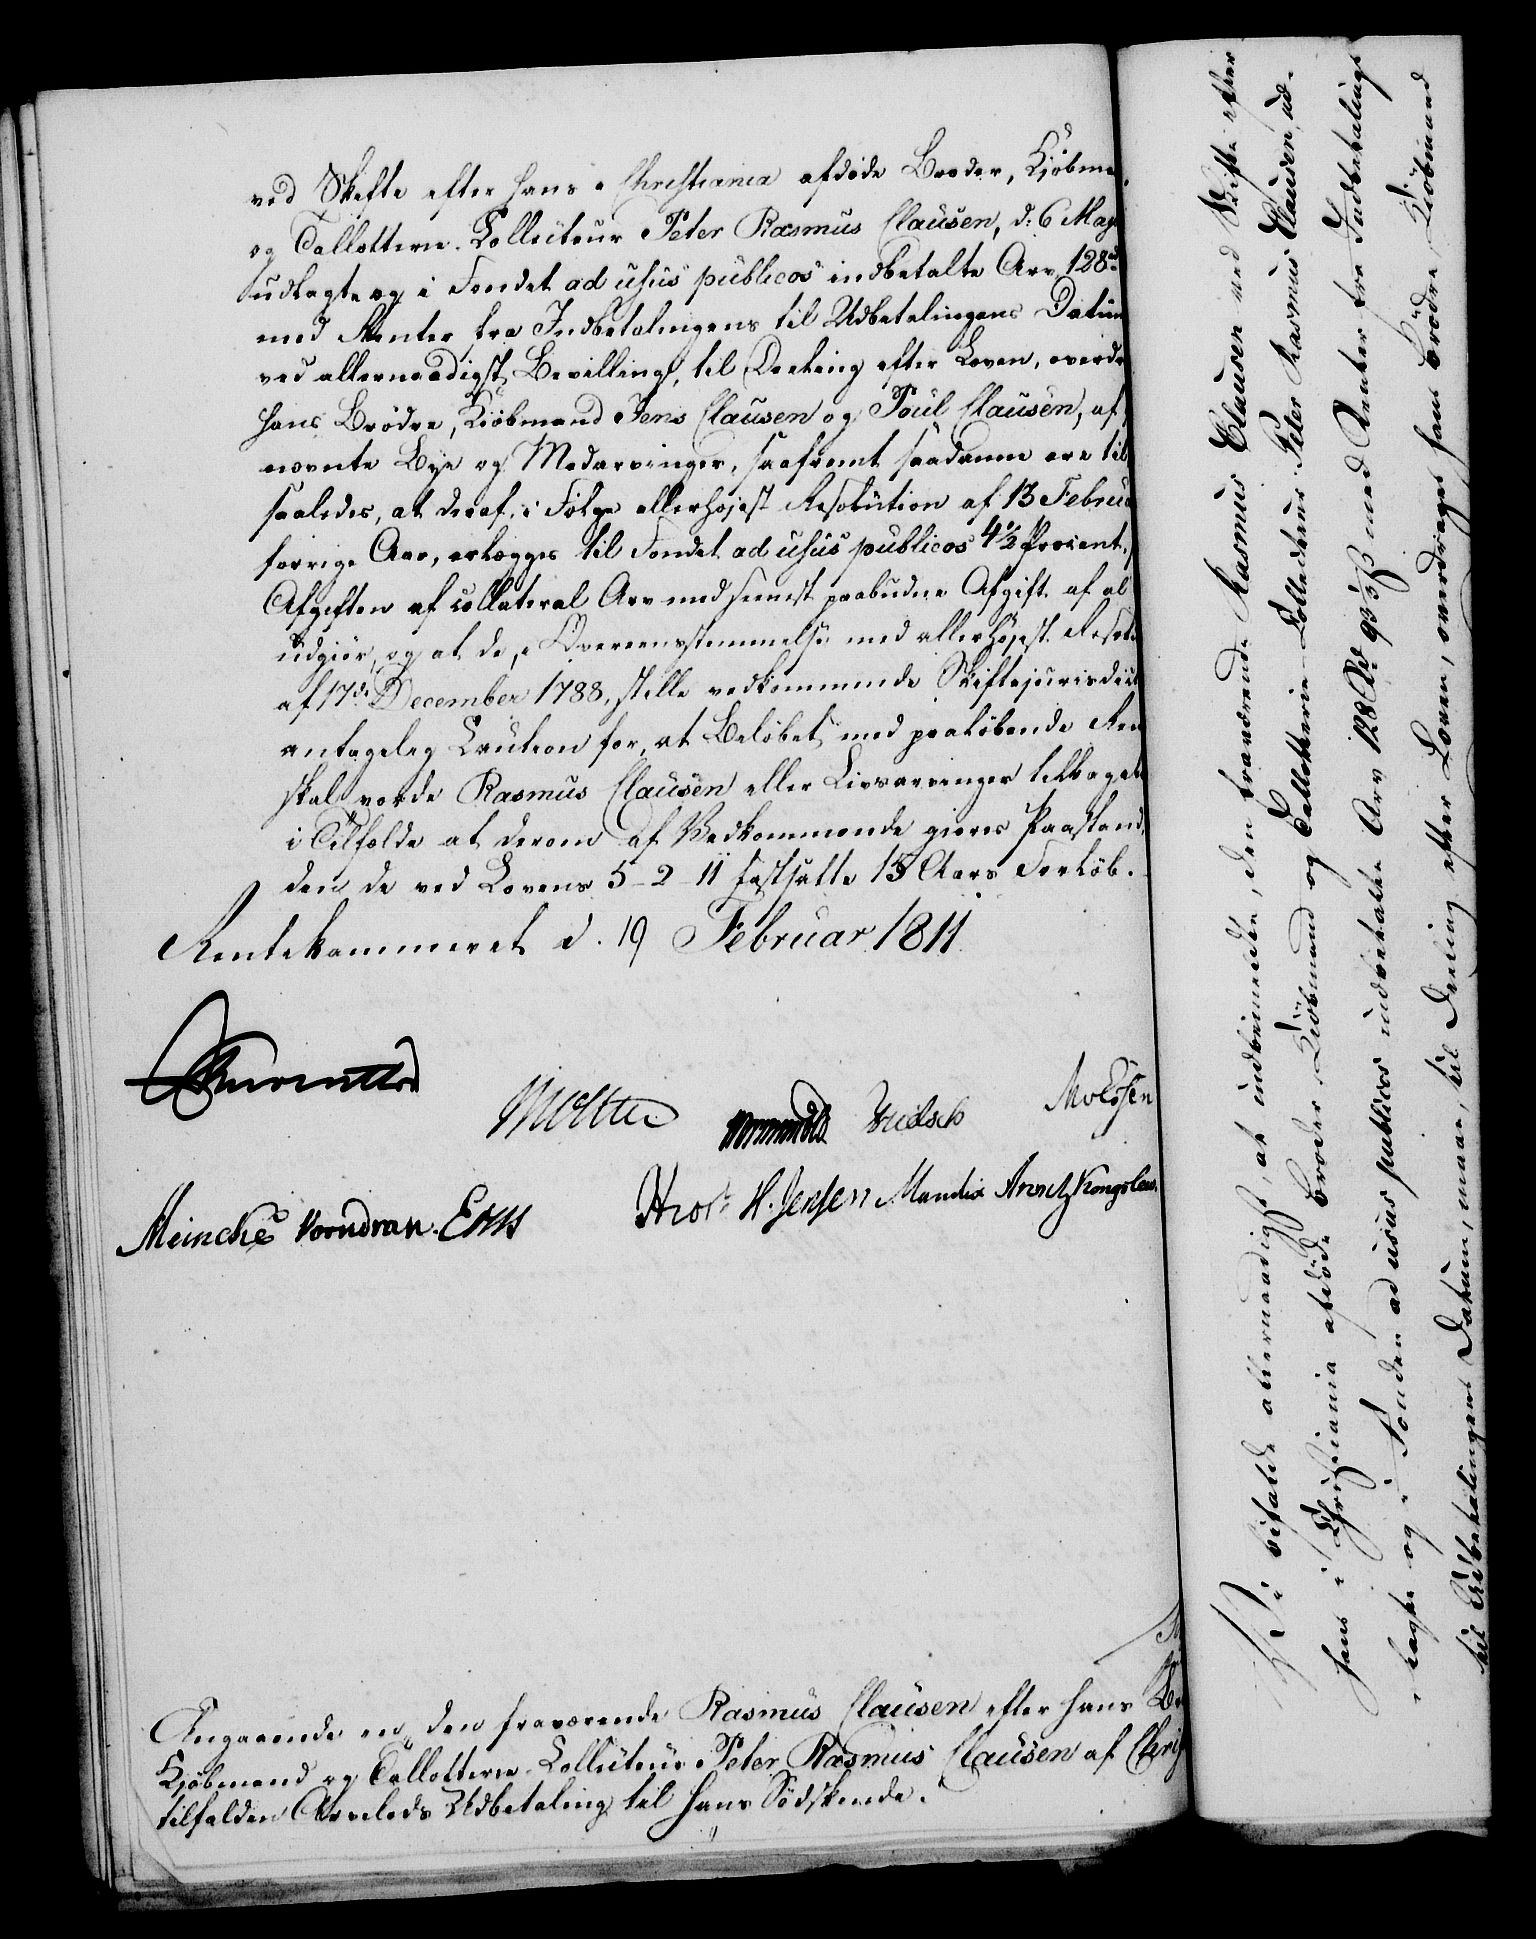 ved Skifte efter hans i Christiania afdöde Broder, Kjöbma
og Tallotterie-Collecteur Peter Rasmus Clausen, d: 6 May
udlagte og i Fondet ad usus publicos indbetalte Arv 128
med Renter fra Indbetalingens til Udbetalingens Datum
ved allernaadigst Bevilling, til Deeling efter Loven, overdr
hans Brödre, Kiöbmand Jens Clausen og Poul Clausen, af
nævnte Bye og Medarvinger, saafremt saadanne ere til
saaledes, at deraf, i Fölge allerhöjest Resolution af 13 Februa
forrige Aar, erlægges til Fondet ad usus publicos 4½ Procent,
Afgiften af collateral Arv med seenest paabudne Afgift af al
udgiör, og at de, i Overeensstemmelse med allerhöjest Resol
af 17de December 1788, stille vedkommende Skiftejurisdict
antagelig Caution for, at Belöbet med paalöbende Ren
skal vorde Rasmus Clausen eller Livsarvinger tilbagebe
i Tilfælde at derom af Vedkommende giöres Paastand,
den de ved Lovens 5-2-11 fastsatte 15 Aars Forlöb.
Rentekammeret d. 19 Februar 1811
Meincke Vorndran. Ens
H. Jensen Mandix Arentz Kongslew.
Angaaende en den fraværende Rasmus Clausen efter hans Br
Kjöbmand og Tallotterie-Collecteur Peter Rasmus Clausen af Chris
tilfalden Arvelods Udbetaling til hans Södskende.
Vi bifalde allernaadigst, at indbemeldte, den fraværende Rasmus Clausen ved Skifte efter
hans i Christiania afdöde Broder, Kiöbmand og Tallotterie-Collecteur Peter Rasmus Clausen, ud-
lagte og i Fonden ad usus publicos indbetalte Arv 128 Rd 93 ß med Renter fra Indbetalings
til Udbetalingens Datum, maae, til Deeling efter Loven, overdrages hans Brödre, Kiöbmand